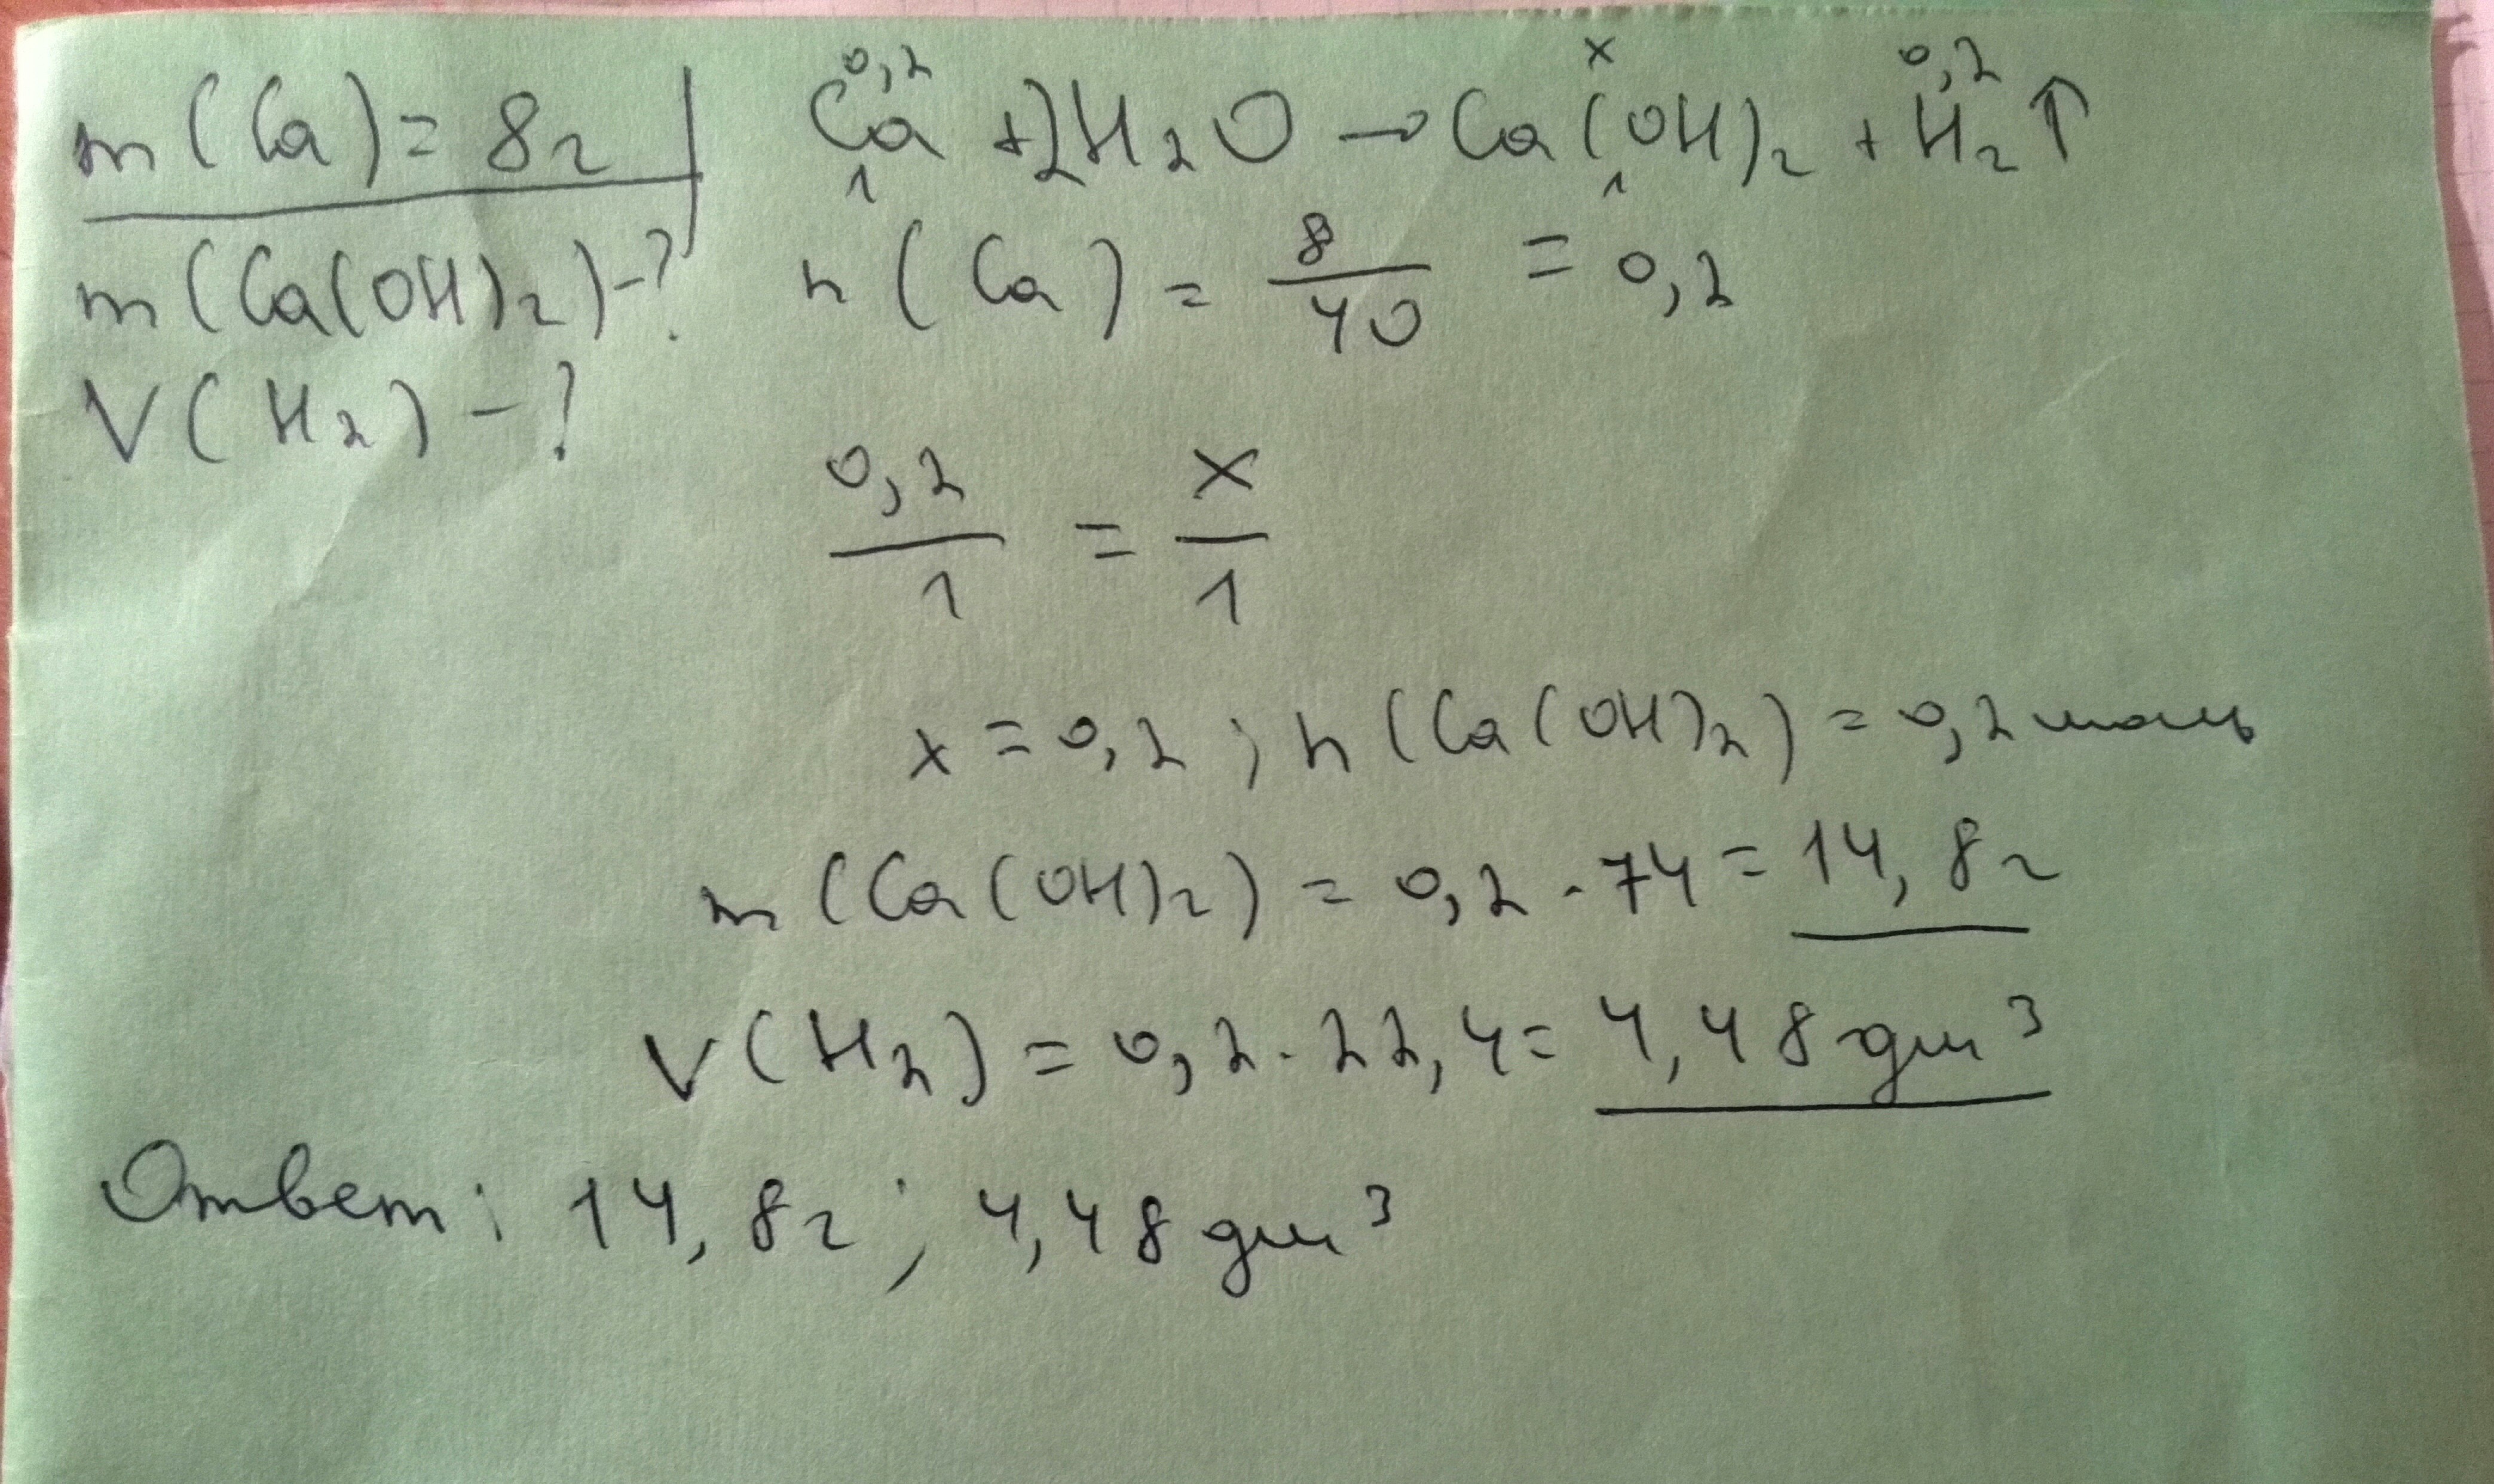 m(Ca)=8г
m(Ca(OH)2)-?
V(H2)-?
0,2 x 0,2
Ca+2H2O→Ca(OH)2+H2↑
1 1
n(Ca)=8/40=0,2
0,2/1=x/1
x=0,2; n(Ca(OH)2)=0,2моль
m(Ca(OH)2)=0,2·74=14,8г
V(H2)=0,2·22,4=4,48дм³
Ответ: 14,8г; 4,48дм³